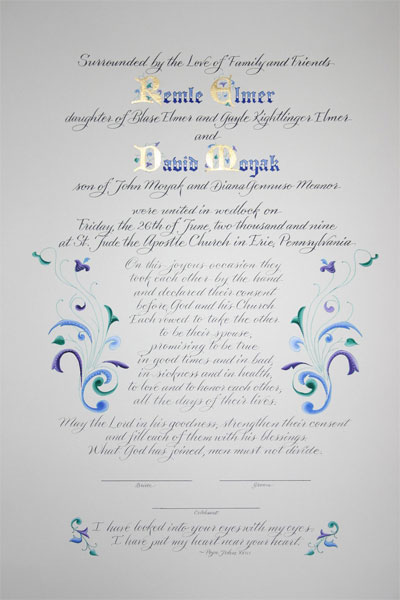 Surrounded by the Love of Family and Friends
Remle Elmer
daughter of Blase Elmer and Gayle Kightlinger Elmer
and
David Moyak
son of John Moyak and Diana Gennuso Meanor
were united in wedlock on
Friday, the 26th of June, two thousand and nine
at St. Jude the Apostle Church in Erie, Pennsylvania
On this joyous occasion they
took each other by the hand
and declared their consent
before God and his Church
Each vowed to take the other
to be their spouse,
promising to be true
in good times and in bad,
in sickness and in health,
to love and to honor each other,
all the days of their lives.
May the Lord in his goodness, strengthen their consent
and fill each of them with his blessings.
What God has joined, men must not divide.
Bride Groom
Celebrant
I have looked into your eyes with my eyes.
I have put my heart near your heart.
~Pope John XXIII